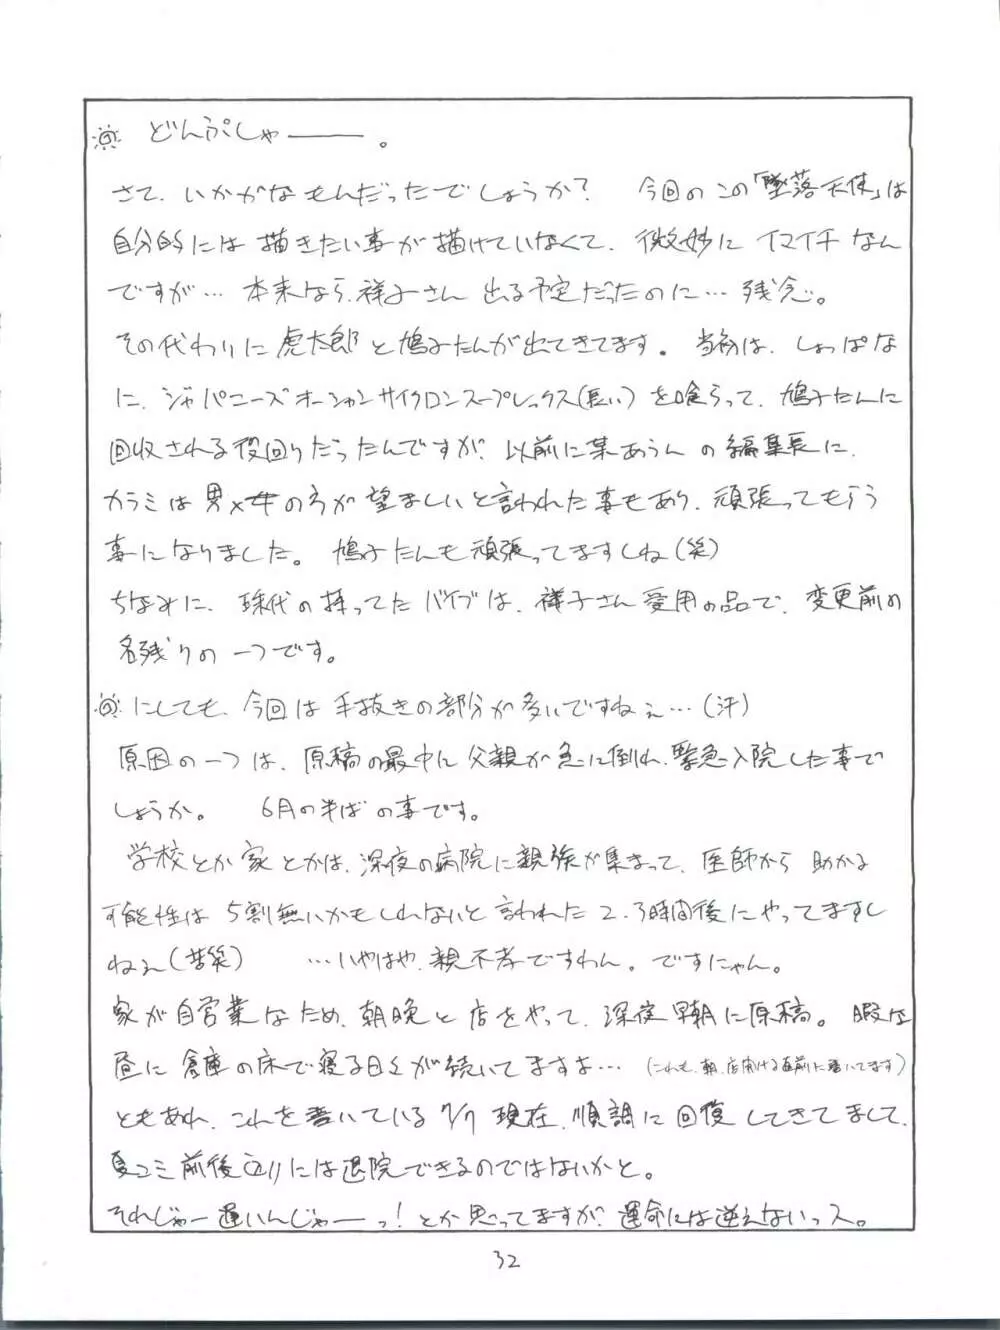 どんぷしゃーーー。
さて、いかがなもんだったでしょうか? 今回のこの「墜落天使」は
自分的には描きたい事が描けていなくて、微妙にイマイチなん
ですが… 本来なら、祥子さん出る予定だったのに… 残念。
その代わりに虎太郎と鳩子たんが出てきてます。 当初は、しょっぱな
に、ジャパニーズオーシャンサイクロンスープレックス(長い)を喰らって、鳩子たんに
回収される役回りだったんですが、以前に某あうんの編集長に、
カラミは男×女の方が望ましいと言われた事もあり、頑張ってもらう
事になりました。 鳩子たんも頑張ってますしね(笑)
ちなみに、珠代の持ってたバイブは、祥子さん愛用の品で、変更前の
名残りの一つです。
にしても、今回は手抜きの部分が多いですねぇ…(汗)
原因の一つは、原稿の最中に父親が急に倒れ、緊急入院した事で
しょうか。 6月の半ばの事です。
学校とか家とかは、深夜の病院に親族が集まって、医師から助かる
可能性は5割無いかもしれないと言われた2、3時間後にやってますし
ねぇ(苦笑) …いやはや、親不孝ですわん。ですにゃん。
家が自営業なため、朝晩と店をやって、深夜早朝に原稿。 暇な
昼に倉庫の床で寝る日々が続いてますよ… (これも、朝、店開ける直前に書いてます)
ともあれ、これを書いている7/7現在、順調に回復してきてまして、
夏コミ前後辺りには退院できるのではないかと。
それじゃー遅いんじゃーーっ! とか思ってますが、運命には逆えないっス。
32